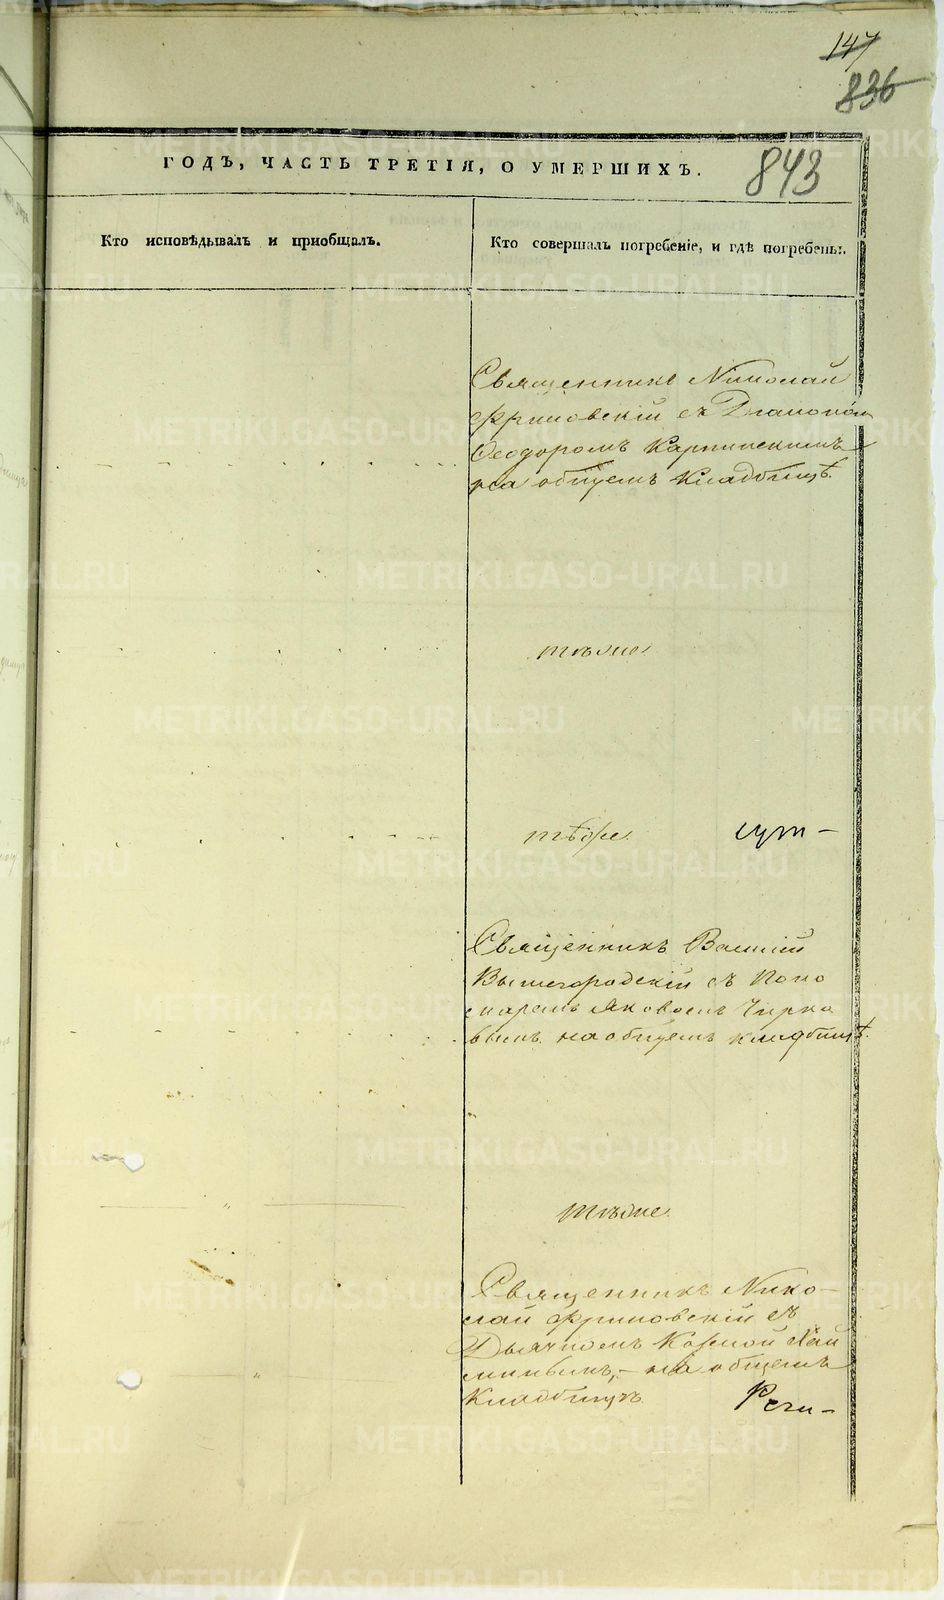 147
836
843
ГОДЪ, ЧАСТЬ ТРЕТІЯ, О УМЕРШИХЪ.
Кто исповѣдывалъ и пріобщалъ.
Кто совершалъ погребеніе, и гдѣ погребены.
Священникъ Николай
Фриновскій съ Діакономъ
Ѳеодоромъ Карпинскимъ
на общемъ кладбищѣ.
тѣже
тѣже
Священникъ Василій
Вышегородскій съ Поно
маремъ Яковомъ Чирко
вымъ на общемъ кладбищѣ.
тѣже
Священникъ Нико-
лай Фриновскій съ
Дьячкомъ Космой
на общемъ
Кладбищѣ
METRIKI.GASO-URAL.RU